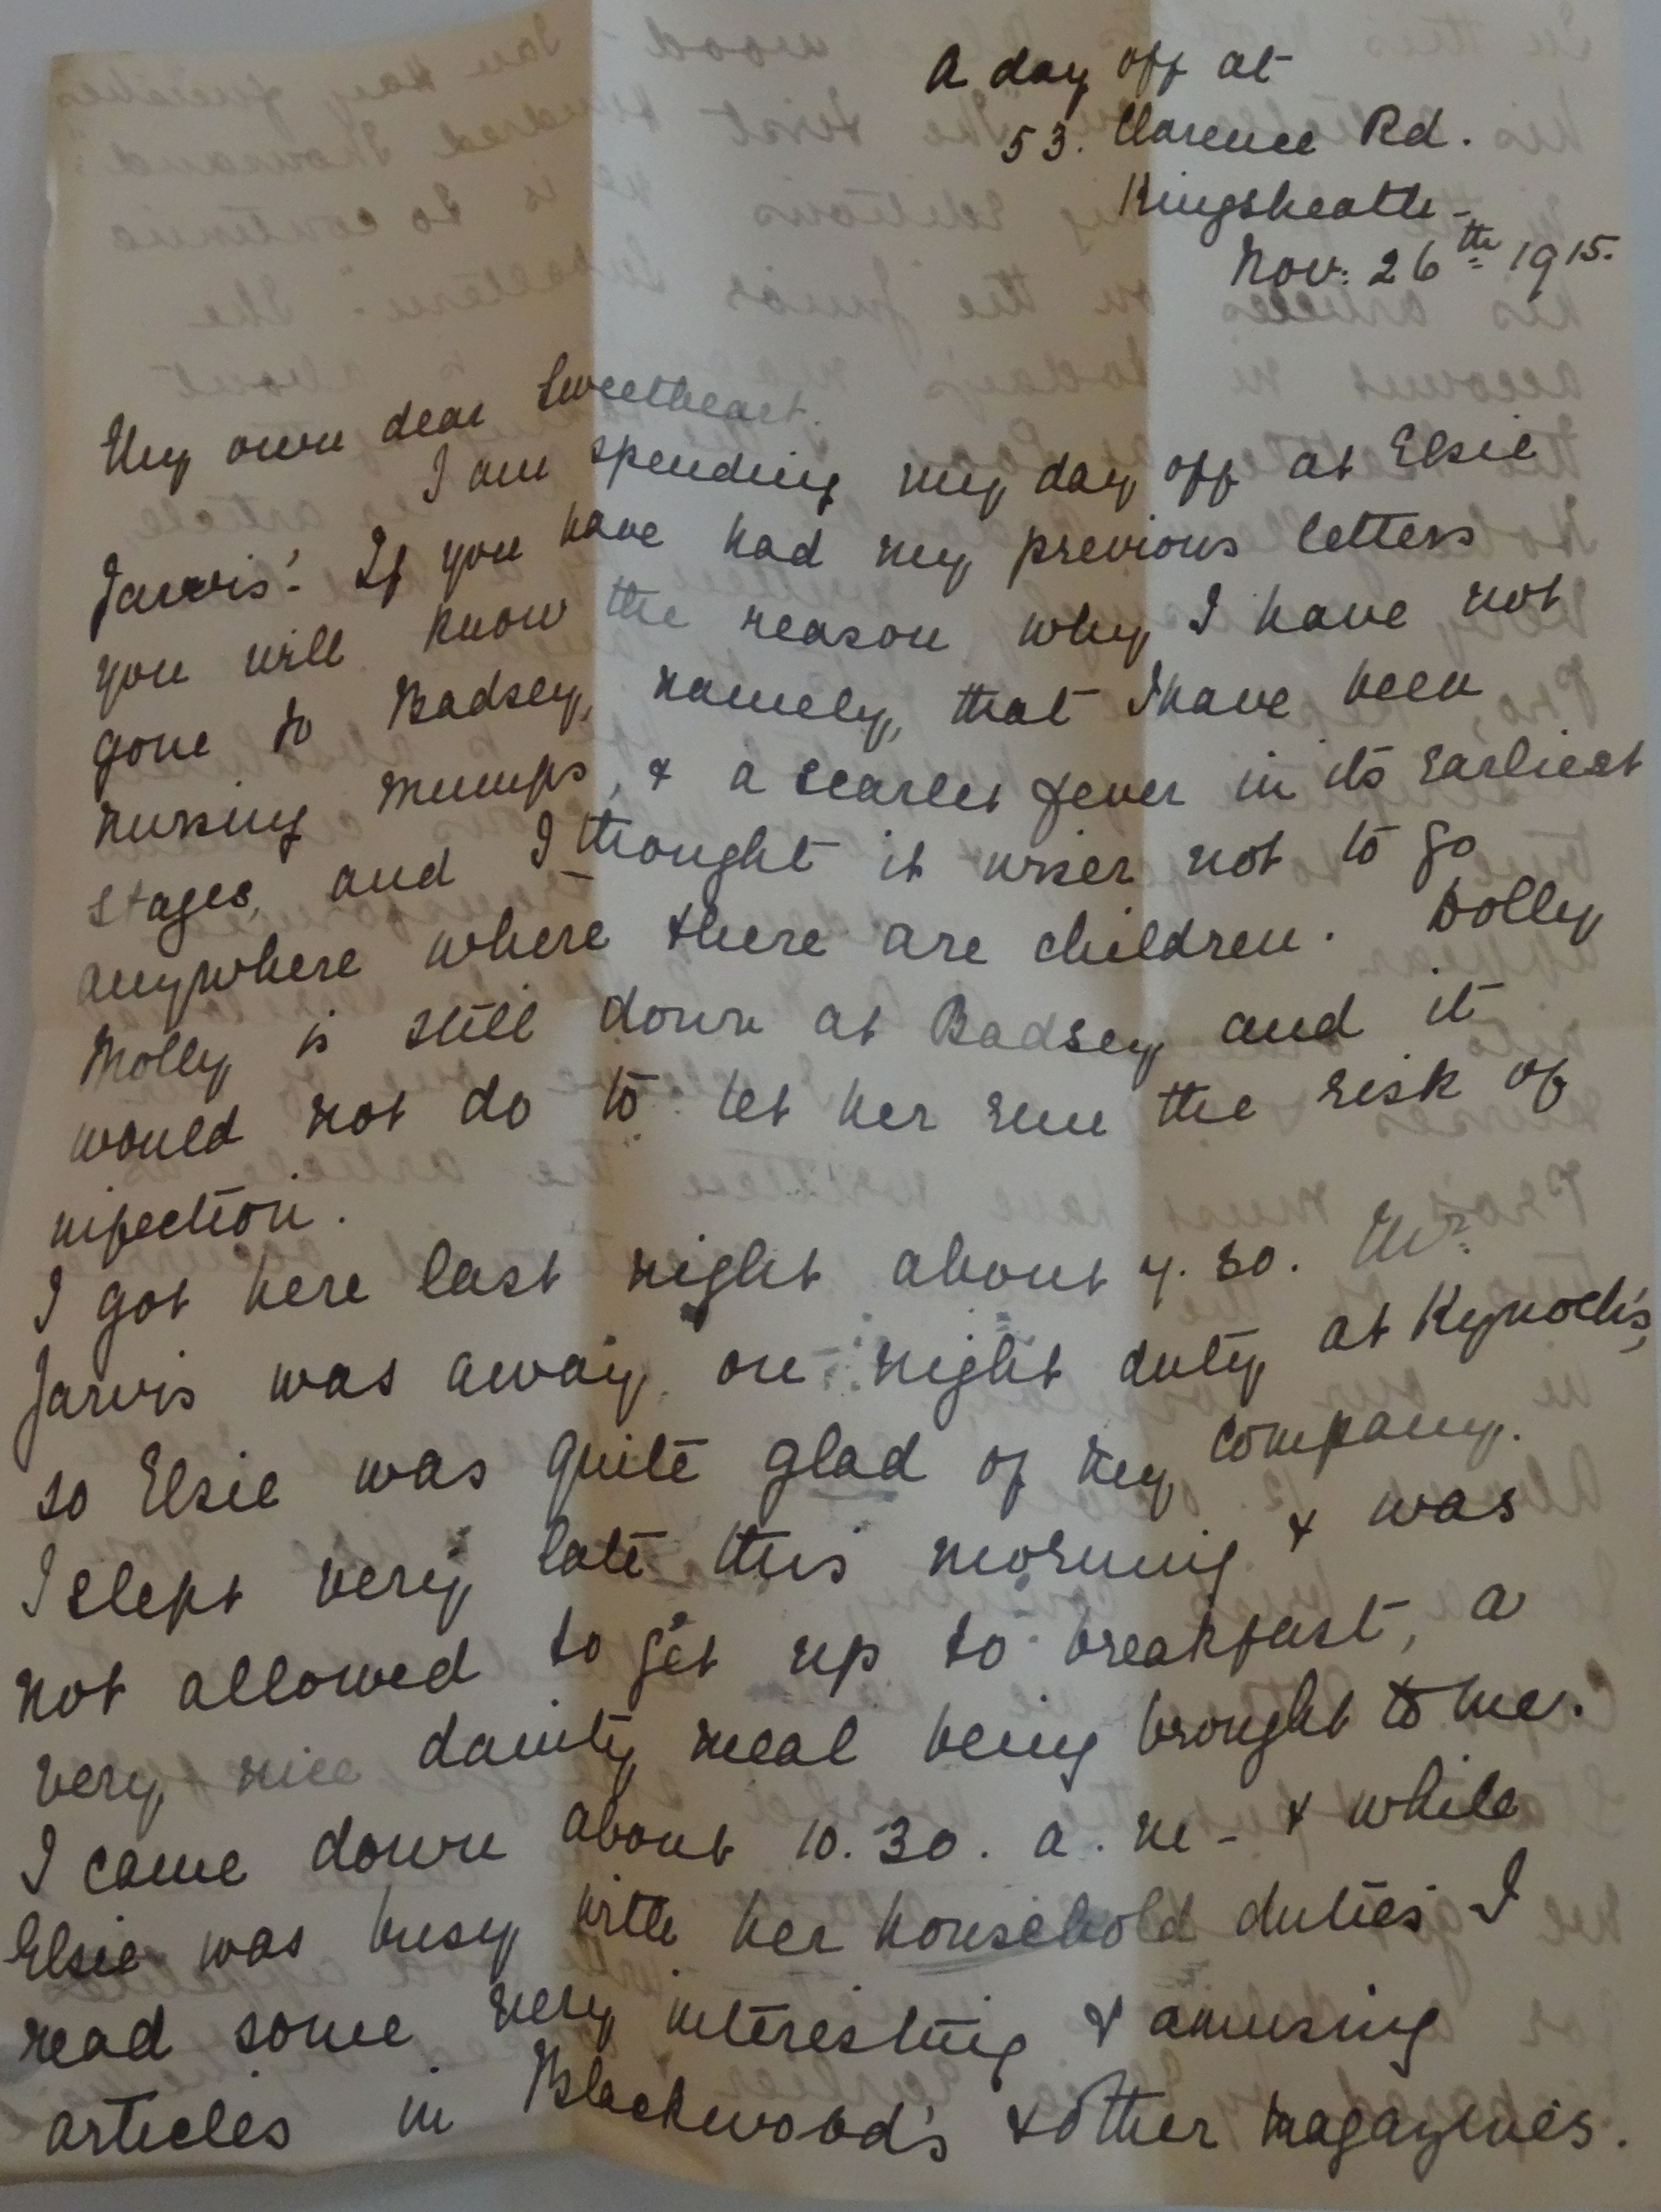 A day off at
53. Clarence Rd.
Kingsheath -
Nov: 26th 1915.
My own dear Sweetheart.
I am spending my day off at Elsie
Jarvis'. If you have had my previous letters
you will know the reason why I have not
gone to Badsey, namely, that I have been
nursing mumps, & a scarlet fever in its earliest
stages, and I thought it wiser not to go
anywhere where there are children. Dolly
Molly is still down at Badsey and it
would not do to let her run the risk of
infection.
I got here last night about 7.30. Mr.
Jarvis was away on night duty at Kynoch's,
so Elsie was quite glad of my company.
I slept very late this morning & was
not allowed to get up to breakfast, a
very nice dainty meal being brought to me.
I came down about 10.30. a.m - & while
Elsie was busy with her household duties I
read some very interesting & amusing
articles in Blackwood's & other magazines.